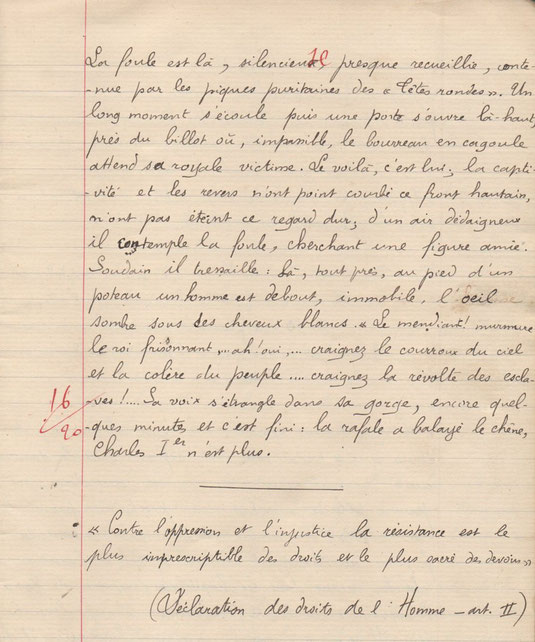 La foule est là, silencieuse, presque recueillie, conte-
-nue par les piques puritaines des « Têtes rondes ». Un
long moment s'écoule puis une porte s'ouvre là-haut,
près du billot où, impassible, le bourreau en cagoule
attend sa royale victime. Le voilà, c'est lui ; la capti-
vité et les revers n'ont point courbé ce front hautain,
n'ont pas éteint ce regard dur ; d'un air dédaigneux
il contemple la foule, cherchant une figure amie.
Soudain il tressaille : là, tout près, au pied d'un
poteau un homme est debout, immobile, l'oeil
sombre sous des cheveux blancs. « Le mendiant ! murmure
le roi frissonnant, ... ah ! oui, ... craignez le courroux du ciel
et la colère du peuple .... craignez la révolte des escla-
ves ! .... La voix s'étrangle dans sa gorge, encore quel-
-ques minutes et c'est fini : la rafale a balayé le chêne,
Charles Ier n'est plus.
16/20
« Contre l'oppression et l'injustice la résistance est le
plus imprescriptible des droits et le plus sacré des devoirs »
(Déclaration des droits de l'Homme - art. II)